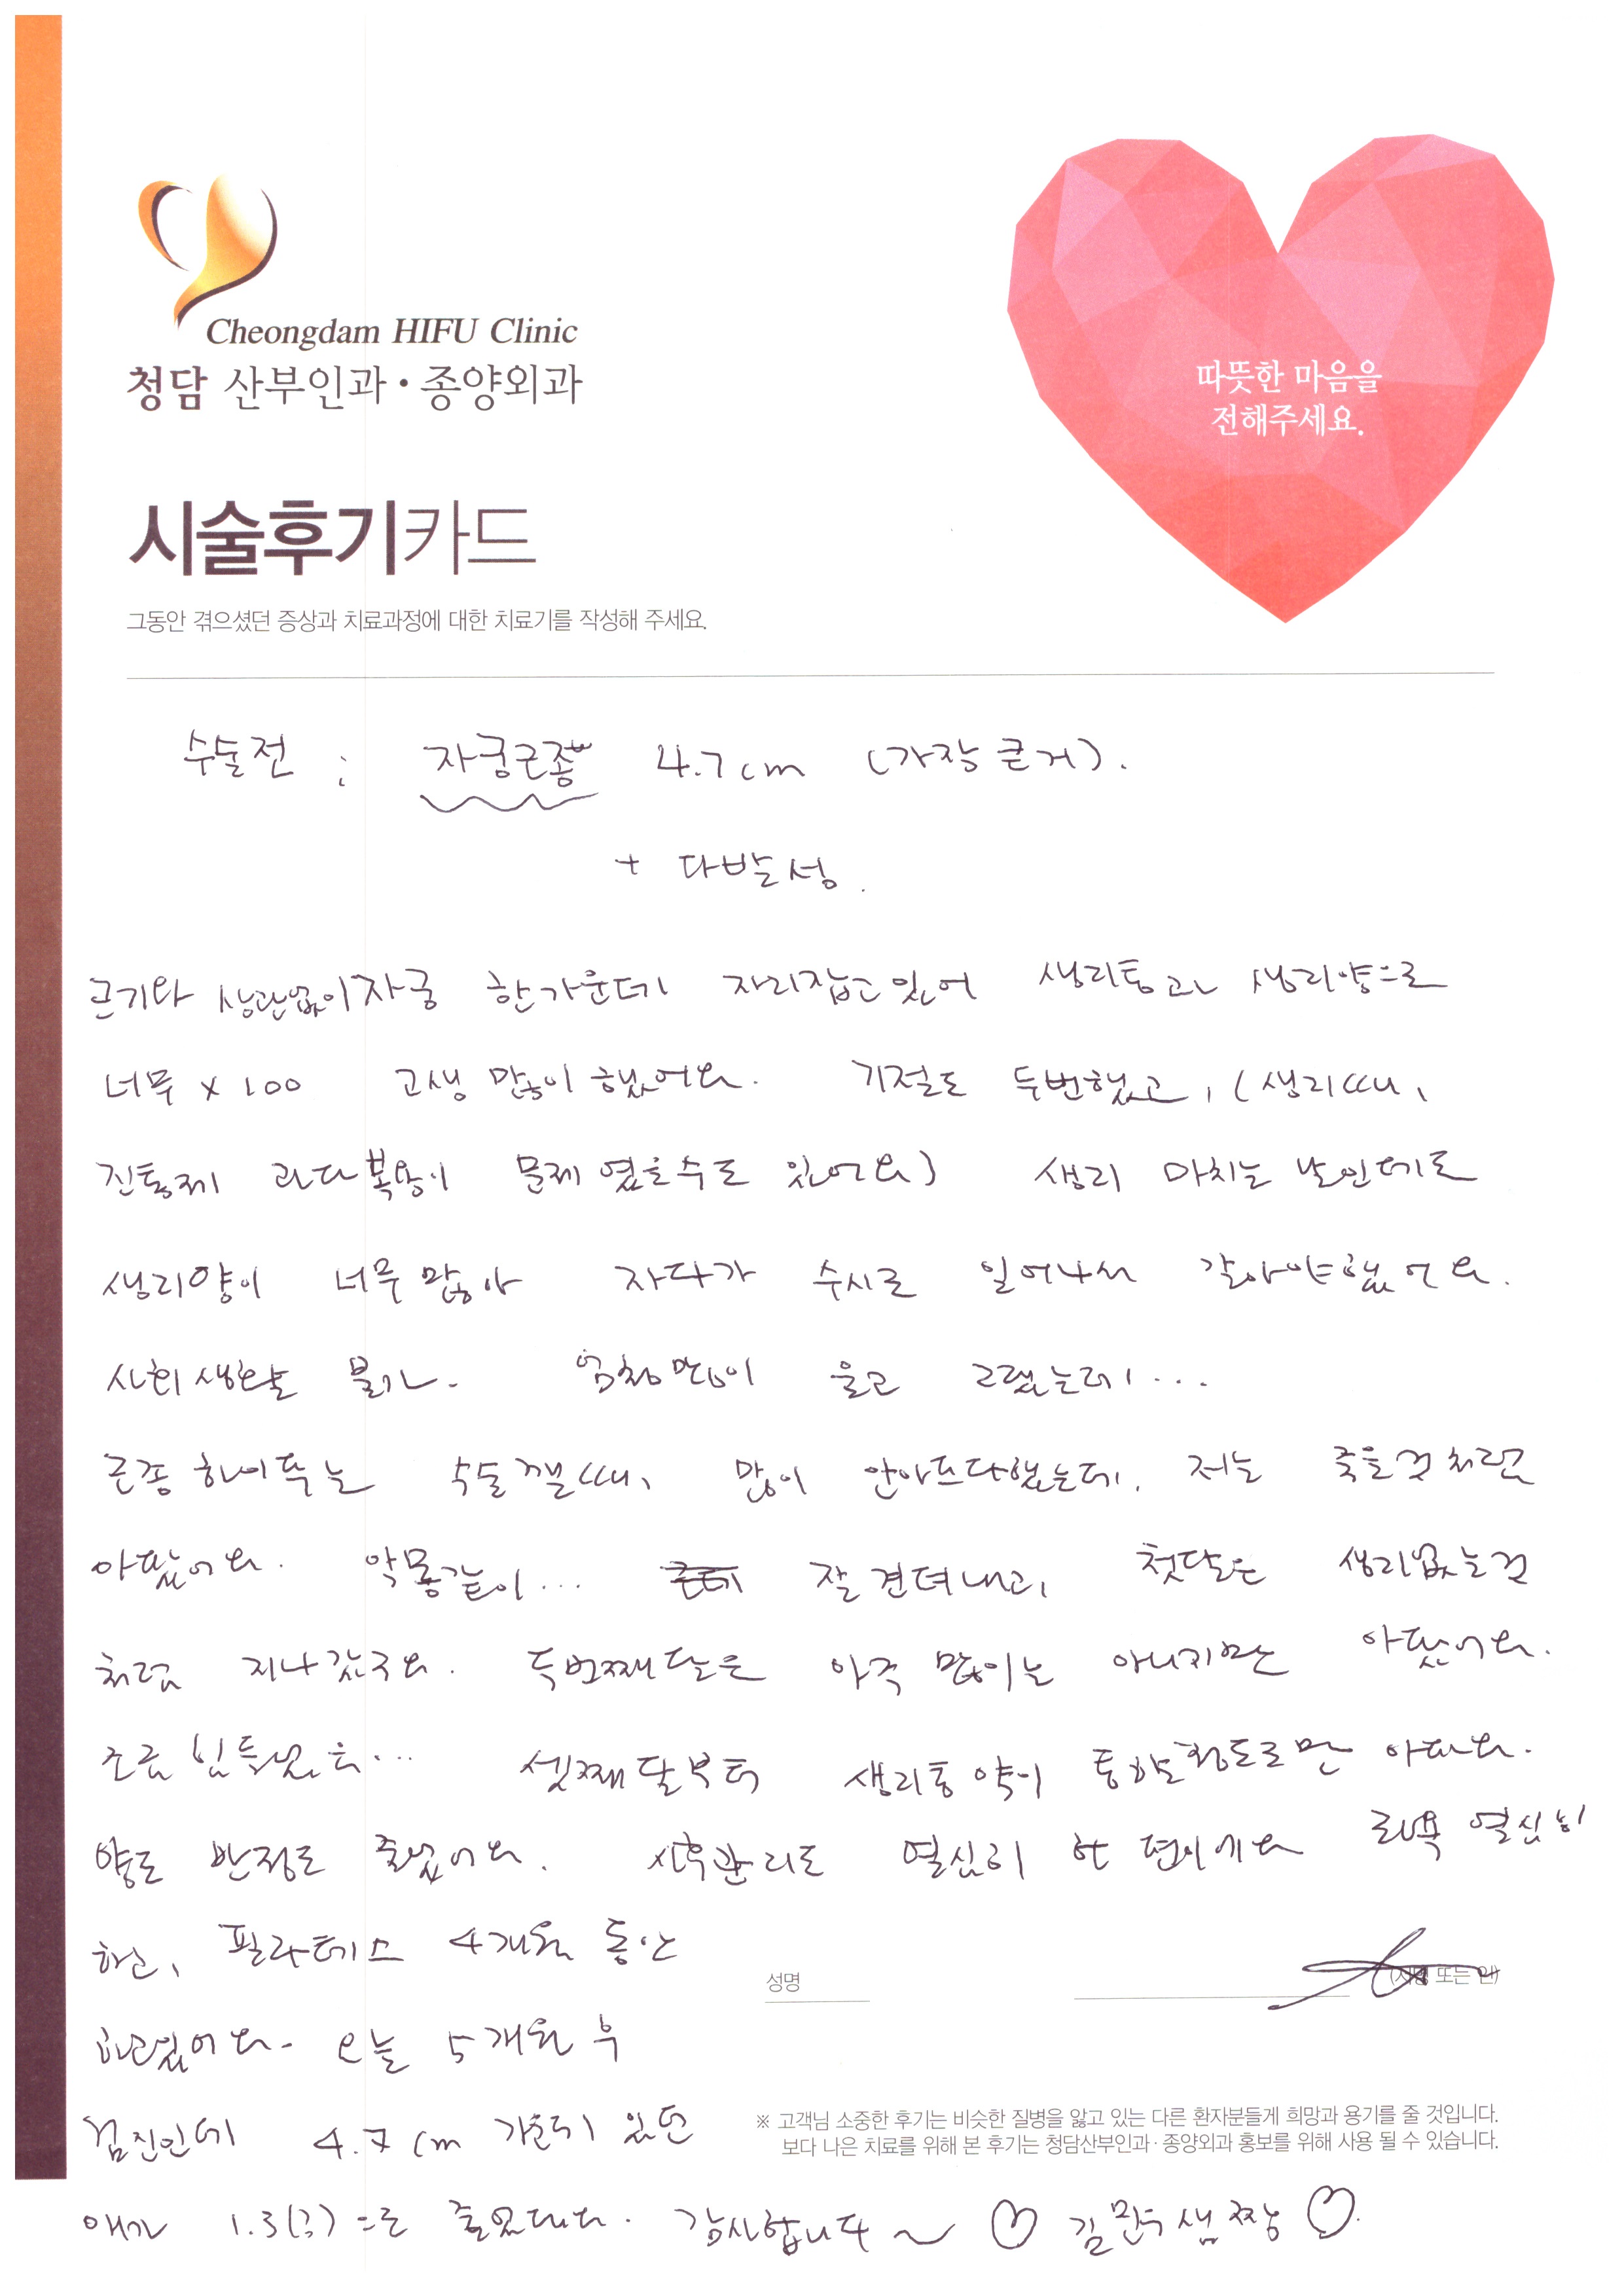 Cheongdam HIFU Clinic
청담 산부인과·종양외과
따뜻한 마음을
전해주세요.
시술후기카드
그동안 겪으셨던 증상과 치료과정에 대한 치료기를 작성해 주세요.
수술전 : 자궁근종 4.7cm (가장 큰거).
+ 다발성.
크기와 상관없이 자궁 한가운데 자리잡고 있어 생리통과 생리양으로
너무 x 100 고생 많이 했어요. 기절도 두번했고, (생리때,
진통제 과다복용이 문제 였을수도 있어요) 생리 마치는 날인데도
생리양이 너무 많아 자다가 수시로 일어나서 갈아야했어요.
사회생활 불가. 엄청 많이 울고 그랬는데...
근종 하이푸는 수술깰때, 많이 안아프다했는데, 저는 죽을것처럼
아팠어요. 악몽같이... 잘 견뎌내고, 첫달은 생리없는것
처럼 지나갔구요. 두번째달은 아주 많이는 아니지만 아팠어요.
조금 힘들었음... 셋째달부터 생리통약이 통할정도로만 아파요.
양도 반정도 줄었어요. 사후관리도 열심히 한 편이에요 좌욕 열심히
하고, 필라테스 4개월 동안
하고있어요. 오늘 5개월 후
검진인데 4.7cm 가운데 있던
애가 1.3(?)으로 줄었대요. 감사합니다~ ♡ 김민우쌤짱 ♡.
성명
(서명 또는 인)
※ 고객님 소중한 후기는 비슷한 질병을 앓고 있는 다른 환자분들게 희망과 용기를 줄 것입니다.
보다 나은 치료를 위해 본 후기는 청담산부인과·종양외과 홍보를 위해 사용 될 수 있습니다.